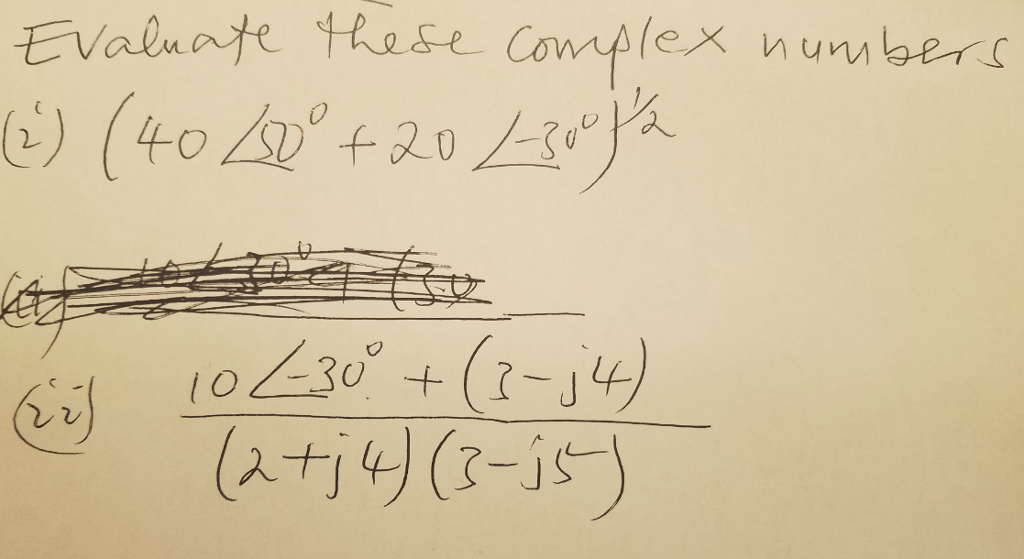 Evaluate these complex numbers
(i) (40 ∠50° + 20 ∠-30°)^1/2
(ii) 10 ∠-30° + (3-j4)
(2+j4)(3-j5)